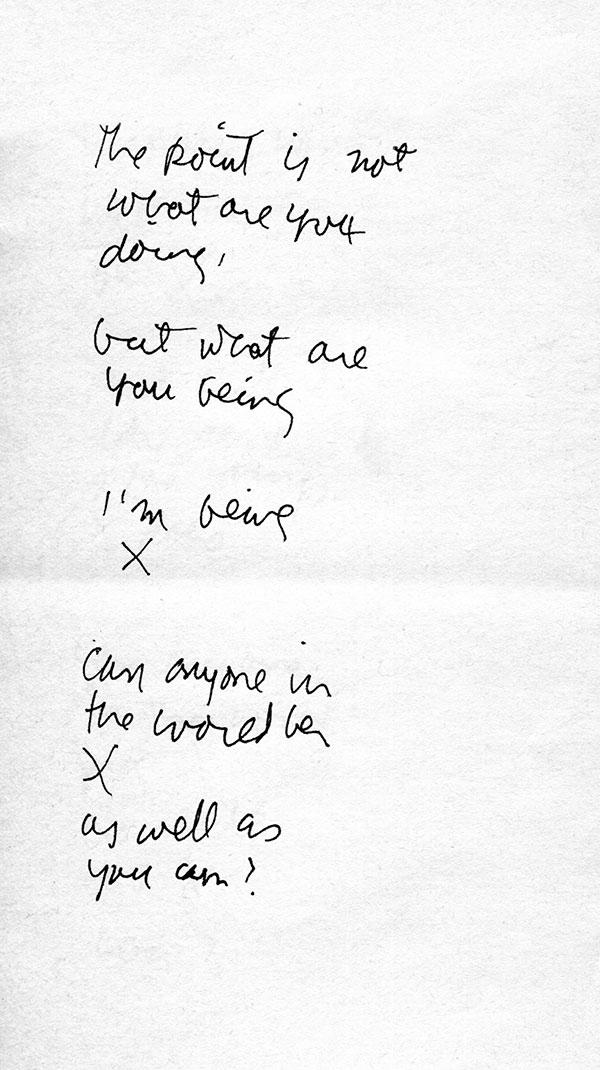 The point is not
what are you
doing,
but what are
you being
I'm being
X
can anyone in
the world be
X
as well as
you can?